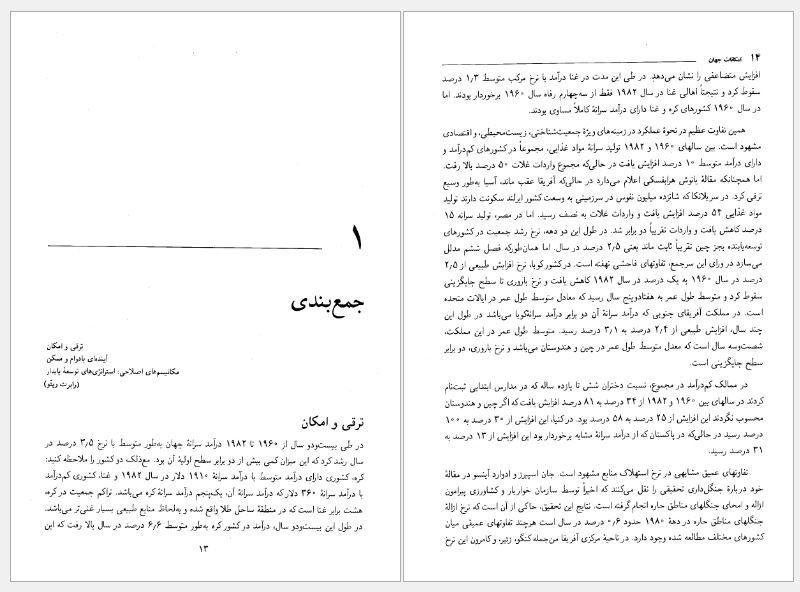 ۱
جمع‌بندی
ترقی و امکان
آینده‌ای بادوام و ممکن
مکانیسم‌های اصلاحی: استراتژی‌های توسعهٔ پایدار
(رابرت ریتو)
ترقی و امکان
در طی بیست‌ودو سال از ۱۹۶۰ تا ۱۹۸۲ درآمد سرانهٔ جهان به‌طور متوسط با نرخ ۳٫۵ درصد در
سال رشد کرد که این میزان کمی بیش از دو برابر سطح اولیهٔ آن بود. مع‌ذلک دو کشور را ملاحظه کنید:
کره، کشوری دارای درآمد متوسط با درآمد سرانهٔ ۱۹۱۰ دلار در سال ۱۹۸۲ و غنا، کشوری کم‌درآمد
با درآمد سرانهٔ ۳۶۰ دلار که درآمد سرانهٔ آن، یک‌پنجم درآمد سرانهٔ کره می‌باشد. تراکم جمعیت در کره،
هشت برابر غنا است که در منطقهٔ ساحل طلا واقع شده و به‌لحاظ منابع طبیعی بسیار غنی‌تر می‌باشد.
در طول این بیست‌ودو سال، درآمد در کشور کره به‌طور متوسط ۶٫۶ درصد در سال بالا رفت که این
۱۳
۱۴ امکانات جهان
افزایش متضاعفی را نشان می‌دهد. در طی این مدت در غنا درآمد با نرخ مرکب متوسط ۱٫۳ درصد
سقوط کرد و نتیجتاً اهالی غنا در سال ۱۹۸۲ فقط از سه‌چهارم رفاه سال ۱۹۶۰ برخوردار بودند. اما
در سال ۱۹۶۰ کشورهای کره و غنا دارای درآمد سرانهٔ کاملاً مساوی بودند.
همین تفاوت عظیم در نحوهٔ عملکرد در زمینه‌های ویژهٔ جمعیت‌شناختی، زیست‌محیطی، و اقتصادی
مشهود است. بین سالهای ۱۹۶۰ و ۱۹۸۲ تولید سرانهٔ مواد غذایی، مجموعاً در کشورهای کم‌درآمد و
دارای درآمد متوسط ۱۰ درصد افزایش یافت در حالی‌که مجموع واردات غلات ۵۰ درصد بالا رفت.
اما همچنانکه مقالهٔ یانوش هرابفسکی اعلام می‌دارد در حالی‌که آفریقا عقب ماند، آسیا به‌طور وسیع
ترقی کرد. در سریلانکا که شانزده میلیون نفوس در سرزمینی به وسعت کشور ایرلند سکونت دارند تولید
مواد غذایی ۵۴ درصد افزایش یافت و واردات غلات به نصف رسید. اما در مصر، تولید سرانه ۱۵
درصد کاهش یافت و واردات تقریباً دو برابر شد. در طول این دو دهه، نرخ رشد جمعیت در کشورهای
توسعه‌یابنده بجز چین تقریباً ثابت ماند یعنی ۲٫۵ درصد در سال. اما همان‌طورکه فصل ششم مدلل
می‌سازد در ورای این سرجمع، تفاوتهای فاحشی نهفته است. در کشور کوبا، نرخ افزایش طبیعی از ۲٫۵
درصد در سال ۱۹۶۰ به یک درصد در سال ۱۹۸۲ کاهش یافت و نرخ باروری تا سطح جایگزینی
سقوط کرد و متوسط طول عمر به هفتادوپنج سال رسید که معادل متوسط طول عمر در ایالات متحده
است. در مملکت آفریقای جنوبی که درآمد سرانهٔ آن دو برابر درآمد سرانهٔ کوبا می‌باشد در طول این
چند سال، افزایش طبیعی از ۲٫۴ درصد به ۳٫۱ درصد رسید. متوسط طول عمر در این مملکت،
شصت‌وسه سال است که معدل متوسط طول عمر در چین و هندوستان می‌باشد و نرخ باروری، دو برابر
سطح جایگزینی است.
در ممالک کم‌درآمد در مجموع، نسبت دختران شش تا یازده ساله که در مدارس ابتدایی ثبت‌نام
کردند در سالهای بین ۱۹۶۰ و ۱۹۸۲ از ۳۴ درصد به ۸۱ درصد افزایش یافت که اگر چین و هندوستان
محسوب نگردند این افزایش از ۲۵ درصد به ۵۸ درصد بود. در کنیا، این افزایش از ۳۰ درصد به ۱۰۰
درصد رسید در حالی‌که در پاکستان که از درآمد سرانهٔ مشابه برخوردار بود این افزایش از ۱۳ درصد به
۳۱ درصد رسید.
تفاوتهای عمیق مشابهی در نرخ استهلاک منابع مشهود است. جان اسپیرز و ادوارد آینسو در مقالهٔ
خود دربارهٔ جنگل‌داری تحقیقی را نقل می‌کنند که اخیراً توسط سازمان خواربار و کشاورزی پیرامون
ازاله و امحای جنگلهای مناطق حاره انجام گرفته است. نتایج این تحقیق، حاکی از آن است که نرخ ازالهٔ
جنگلهای مناطق حاره در دههٔ ۱۹۸۰ حدود ۰٫۶ درصد در سال است هرچند تفاوتهای عمیقی میان
کشورهای مختلف مطالعه شده وجود دارد. در ناحیهٔ مرکزی آفریقا من‌جمله کنگو، زئیر، و کامرون این نرخ